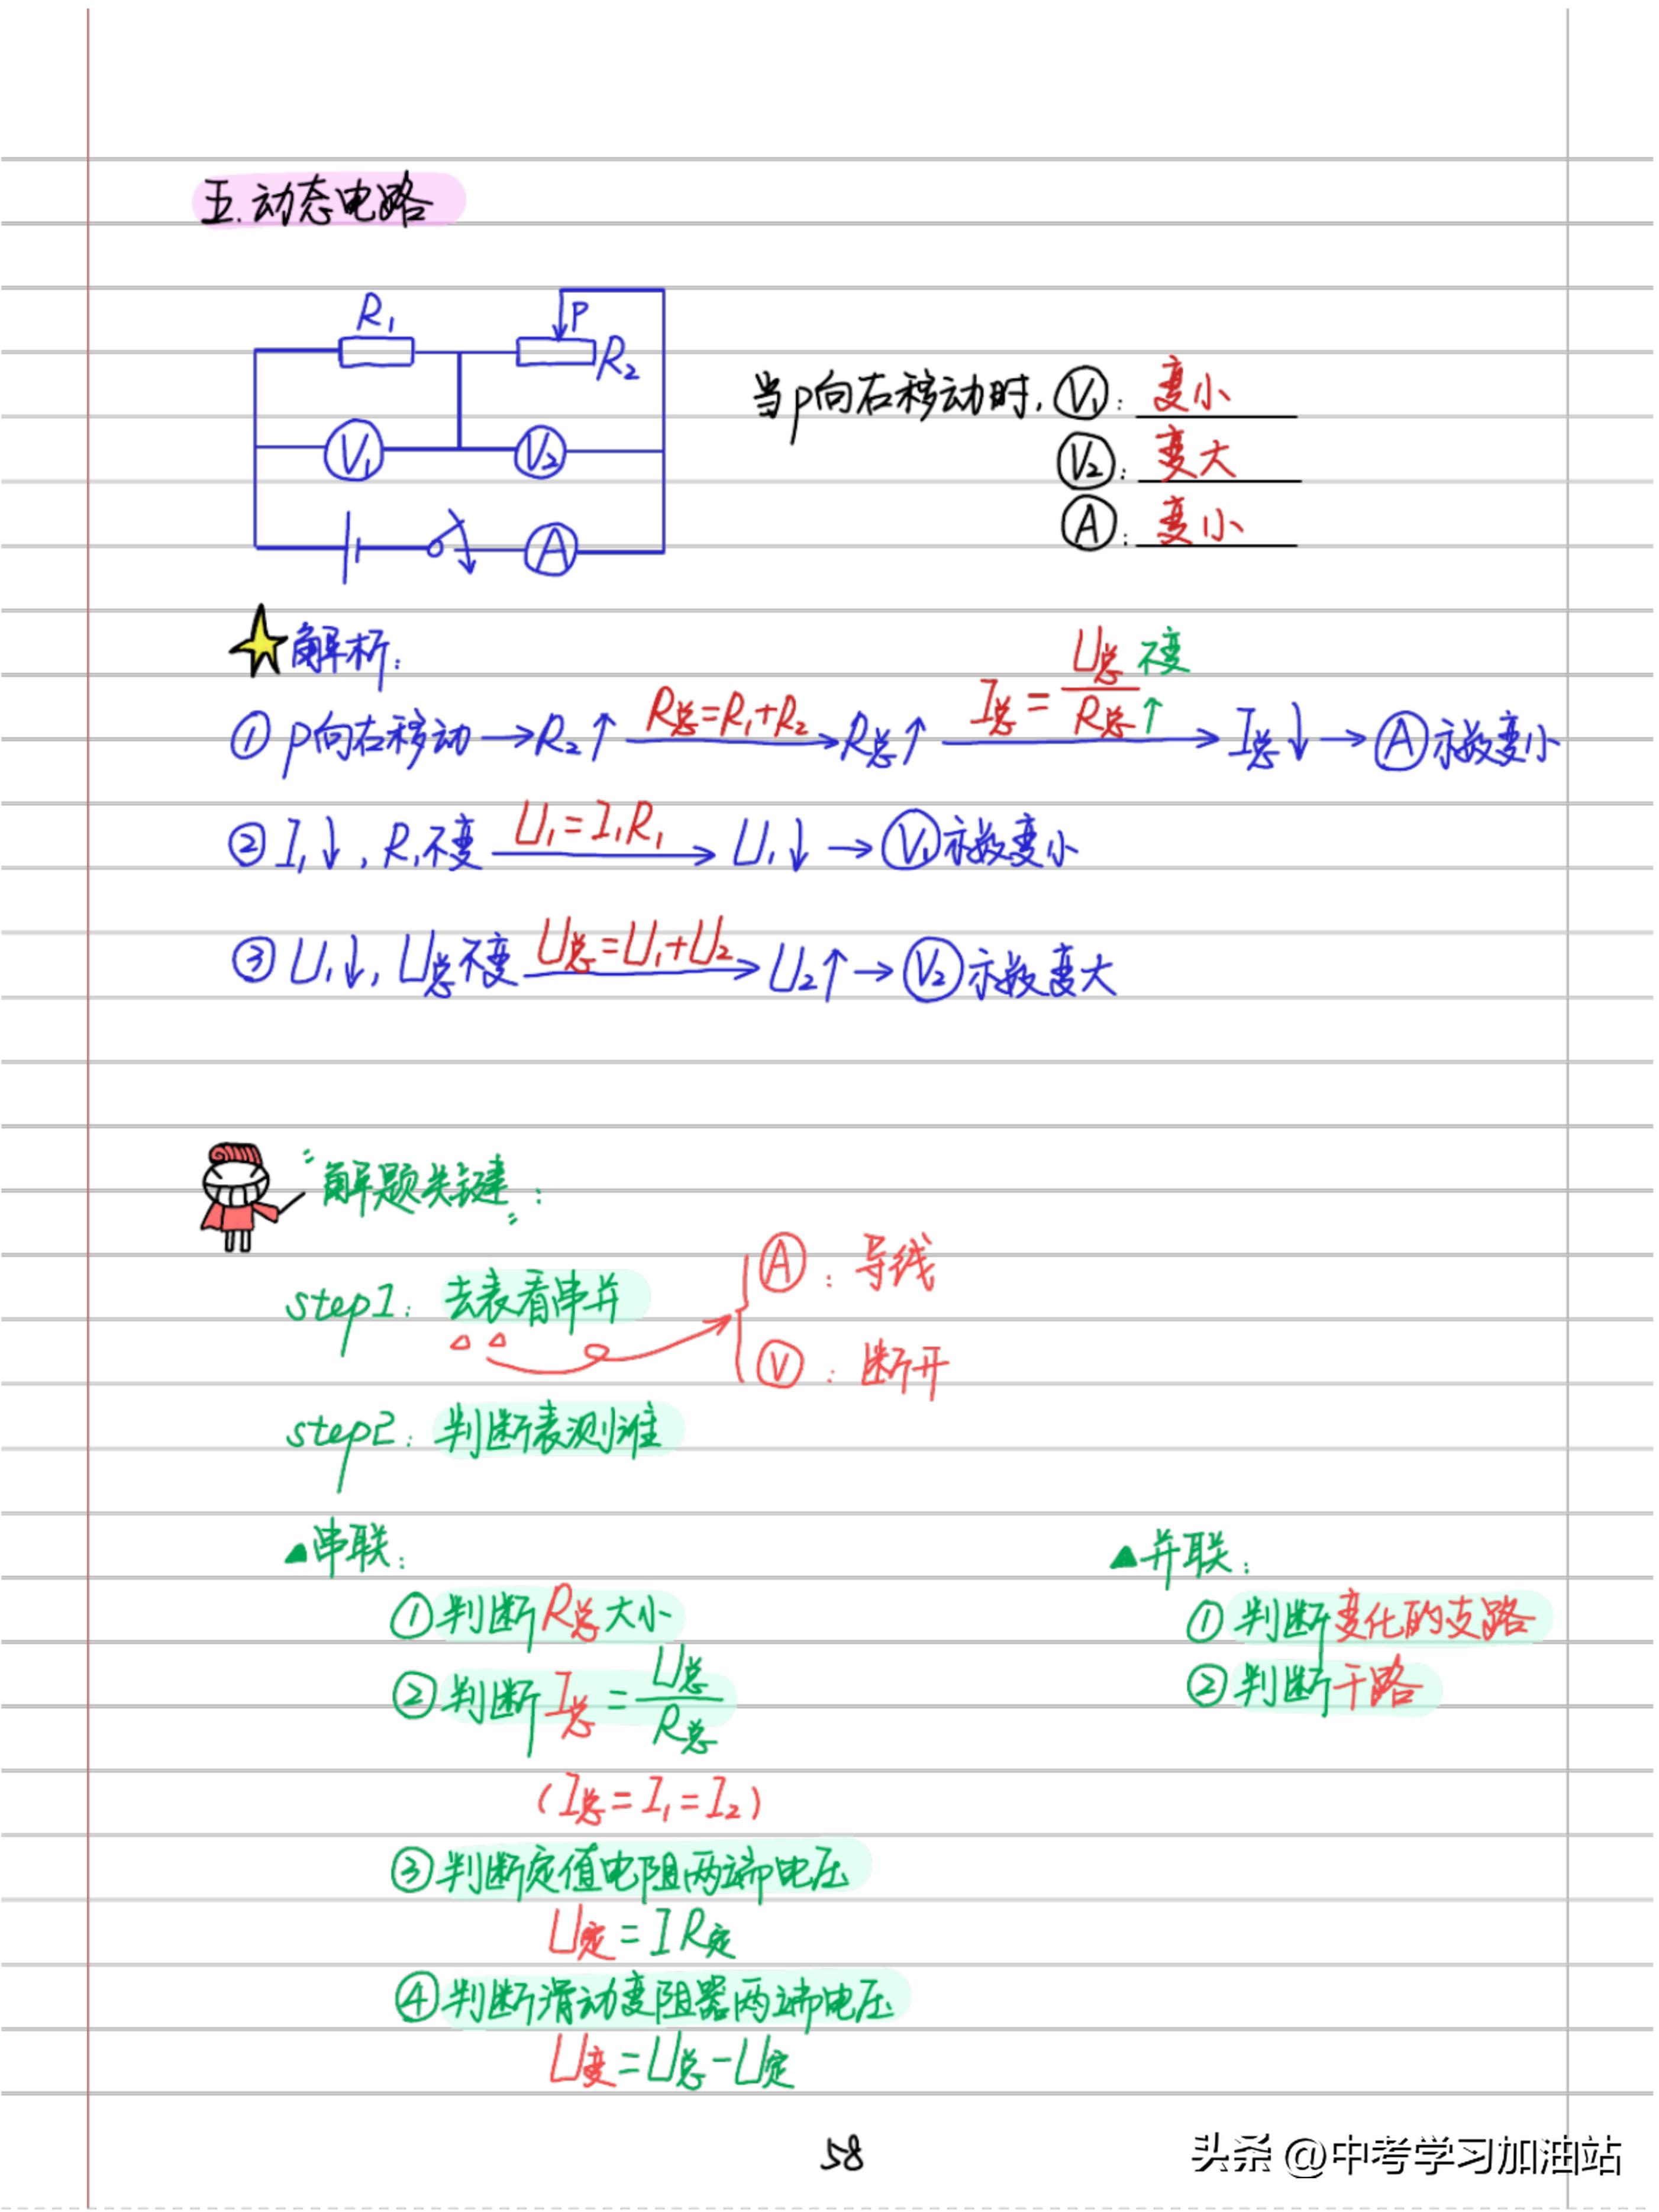 五.动态电路
R₁
P
R₂
V₁
V₂
A
当P向右移动时, V₁: 变小
V₂: 变大
A: 变小
解析:
①P向右移动→R₂↑ R总=R₁+R₂ → R总↑ I总=U总不变/R总↑ → I总↓→A示数变小
②I₁↓, R₁不变 U₁=I₁R₁ → U₁↓→V₁示数变小
③U₁↓, U总不变 U总=U₁+U₂ → U₂↑→V₂示数变大
"解题关键":
step1: 去表看串并
A: 导线
V: 断开
step2: 判断表测谁
▲串联:
①判断R总大小
②判断I总=U总/R总
(I总=I₁=I₂)
③判断定值电阻两端电压
U定=IR定
④判断滑动变阻器两端电压
U变=U总-U定
▲并联:
①判断变化的支路
②判断干路
58
头条@中考学习加油站